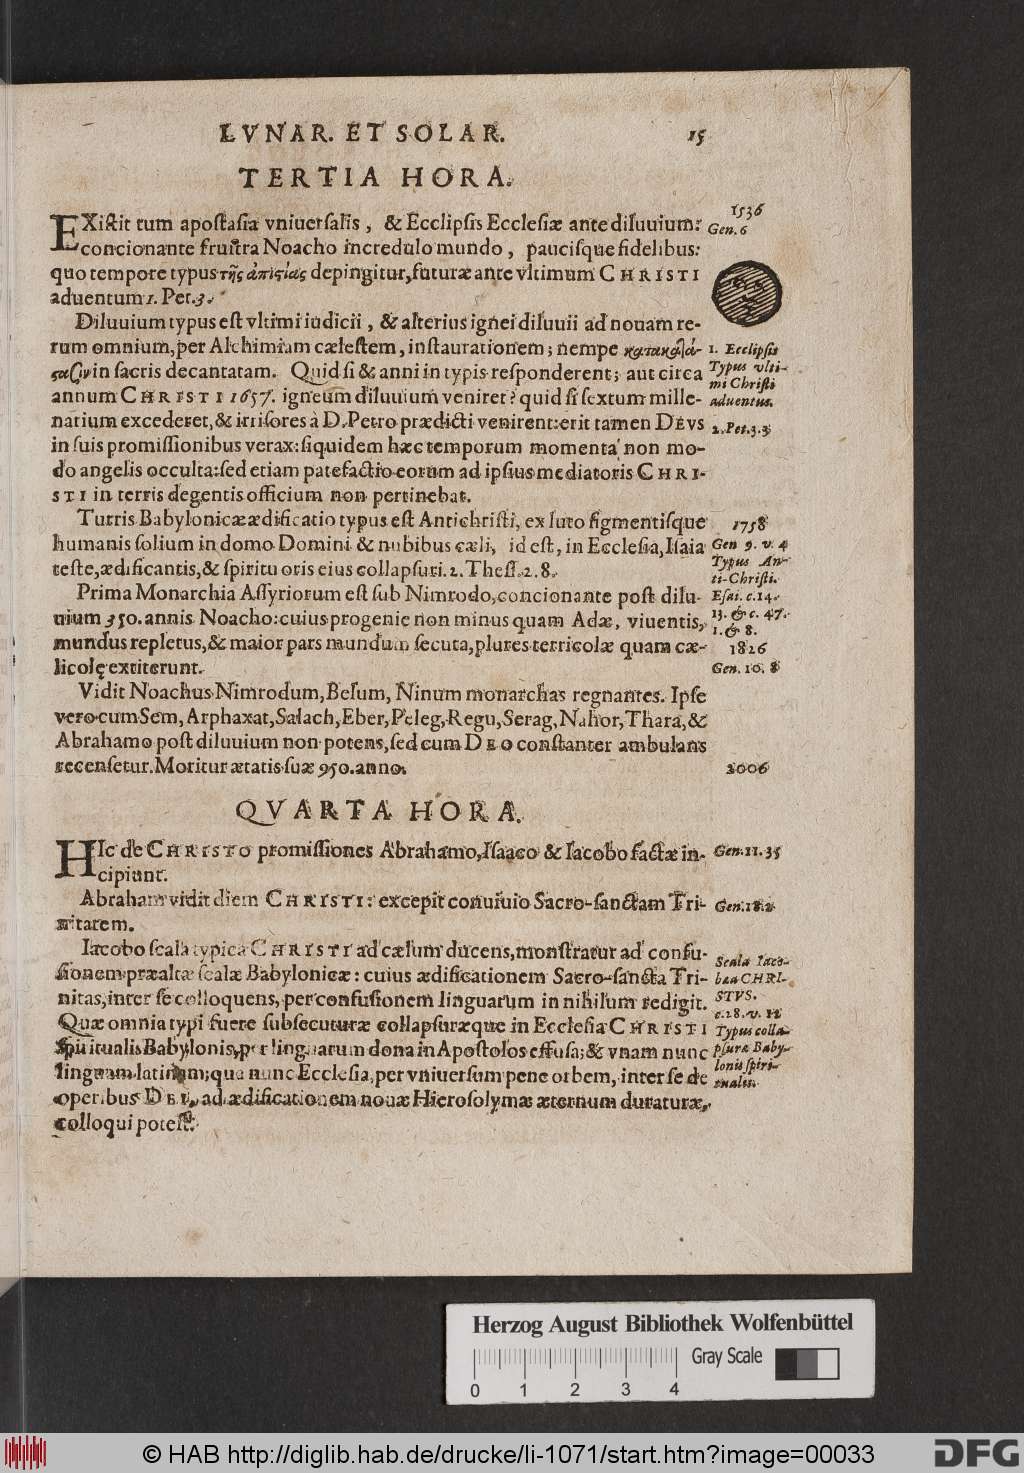 LVNAR. ET SOLAR. 15
TERTIA HORA.
EXiſtit tum apoſtaſia vniuerſalis, & Ecclipſis Eccleſiæ ante diluuium:
concionante fruſtra Noacho incredulo mundo, pauciſque fidelibus:
quo tempore typus τῆς ἀπιςίας depingitur, futuræ ante vltimum CHRISTI
aduentum 1. Pet. 3.
1536
Gen. 6
Diluuium typus eſt vltimi iudicii, & alterius ignei diluuii ad nouam re-
rum omnium, per Alchimiam cæleſtem, inſtaurationem; nempe
in ſacris decantatam. Quid ſi & anni in typis reſponderent; aut circa
annum CHRISTI 1657. igneum diluuium veniret? quid ſi ſextum mille-
narium excederet, & irriſores à D. Petro prædicti venirent: erit tamen DEVS
in ſuis promiſſionibus verax: ſiquidem hæc temporum momenta non mo-
do angelis occulta: ſed etiam patefactio eorum ad ipſius mediatoris CHRI-
STI in terris degentis officium non pertinebat.
1. Ecclipſis
Typus vlti-
mi Chriſti
aduentus.
2. Pet. 3. 3
Turris Babylonicæ ædificatio typus eſt Antichriſti, ex luto figmentiſque
humanis ſolium in domo Domini & nubibus cæli, id eſt, in Eccleſia, Iſaia
teſte, ædificantis, & ſpiritu oris eius collapſuri. 2. Theſſ. 2. 8.
1758
Gen 9. v. 4
Typus An-
ti-Chriſti.
Eſai. c. 14.
13. & c. 47.
1. & 8.
Prima Monarchia Aſſyriorum eſt ſub Nimrodo, concionante poſt dilu-
uium 350. annis Noacho: cuius progenie non minus quam Adæ, viuentis,
mundus repletus, & maior pars mundum ſecuta, plures terricolæ quam cæ-
licolę extiterunt.
1826
Gen. 10. 8
Vidit Noachus Nimrodum, Belum, Ninum monarchas regnantes. Ipſe
vero cum Sem, Arphaxat, Salach, Eber, Peleg, Regu, Serag, Nahor, Thara, &
Abrahamo poſt diluuium non potens, ſed cum DEO conſtanter ambulans
recenſetur. Moritur ætatis ſuæ 950. anno.
2006
QVARTA HORA.
HIc de CHRISTO promiſſiones Abrahamo, Iſaaco & Iacobo factæ in-
cipiunt.
Gen. 11. 35
Abraham vidit diem CHRISTI: excepit conuiuio Sacro-ſanctam Tri-
nitatem.
Gen. 18. 2
Iacobo ſcala typica CHRISTI ad cælum ducens, monſtratur ad confu-
ſionem præaltæ ſcalæ Babylonicæ: cuius ædificationem Sacro-ſancta Tri-
nitas, inter ſe colloquens, per confuſionem linguarum in nihilum redigit.
Quæ omnia typi fuere ſubſecuturæ collapſuræque in Eccleſia CHRISTI
ſpiritualis Babylonis, per linguarum dona in Apoſtolos effuſa; & vnam nunc
linguam latinam; qua nunc Eccleſia, per vniuerſum pene orbem, inter ſe de
operibus DEI, ad ædificationem nouæ Hieroſolymæ æternum duraturæ,
colloqui poteſt.
Scala Iaco-
bæa CHRI-
STVS.
c. 28. v. 12
Typus colla-
pſuræ Baby-
lonis ſpiri-
tualis.
Herzog August Bibliothek Wolfenbüttel
Gray Scale
0 1 2 3 4
© HAB http://diglib.hab.de/drucke/li-1071/start.htm?image=00033
DFG